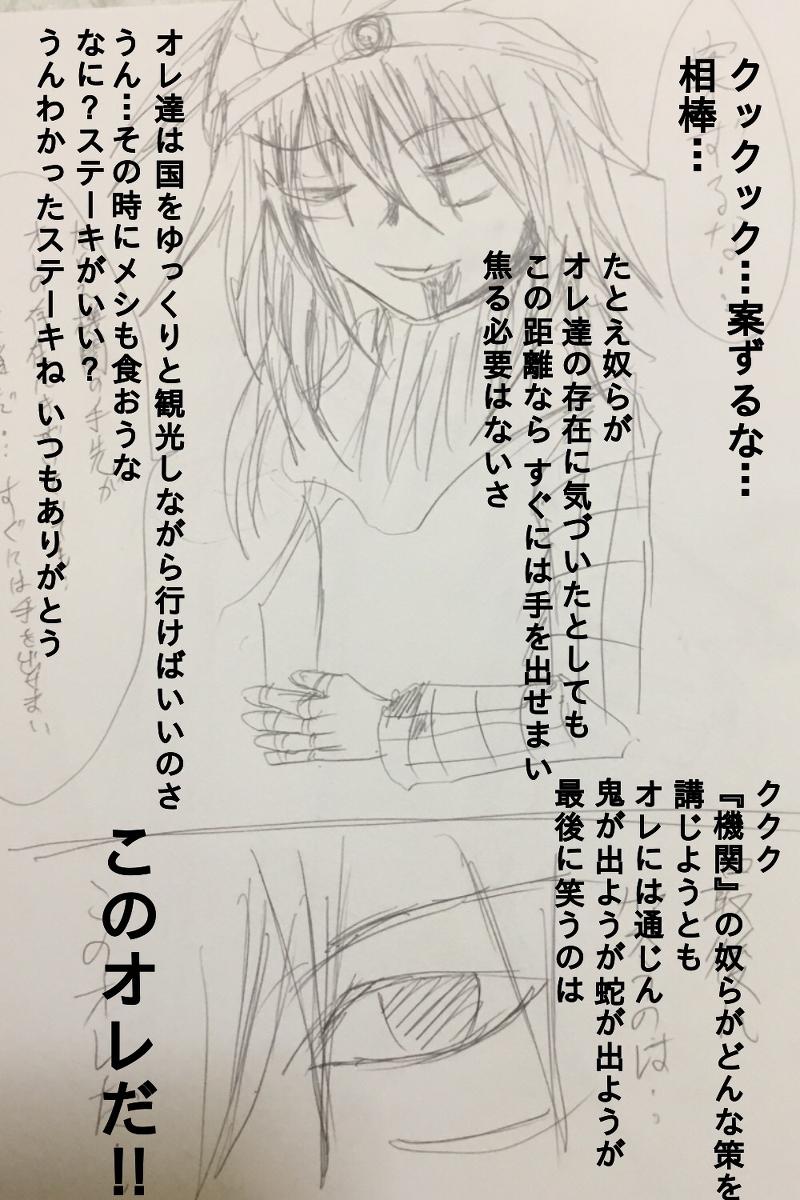 クックック…案ずるな…
相棒…
たとえ奴らが
オレ達の存在に気づいたとしても
この距離なら すぐには手を出せまい
焦る必要はないさ
オレ達は国をゆっくりと観光しながら行けばいいのさ
うん…その時にメシも食おうな
なに？ステーキがいい？
うんわかったステーキね いつもありがとう
ククク
『機関』の奴らがどんな策を
講じようとも
オレには通じん
鬼が出ようが蛇が出ようが
最後に笑うのは
このオレだ!!